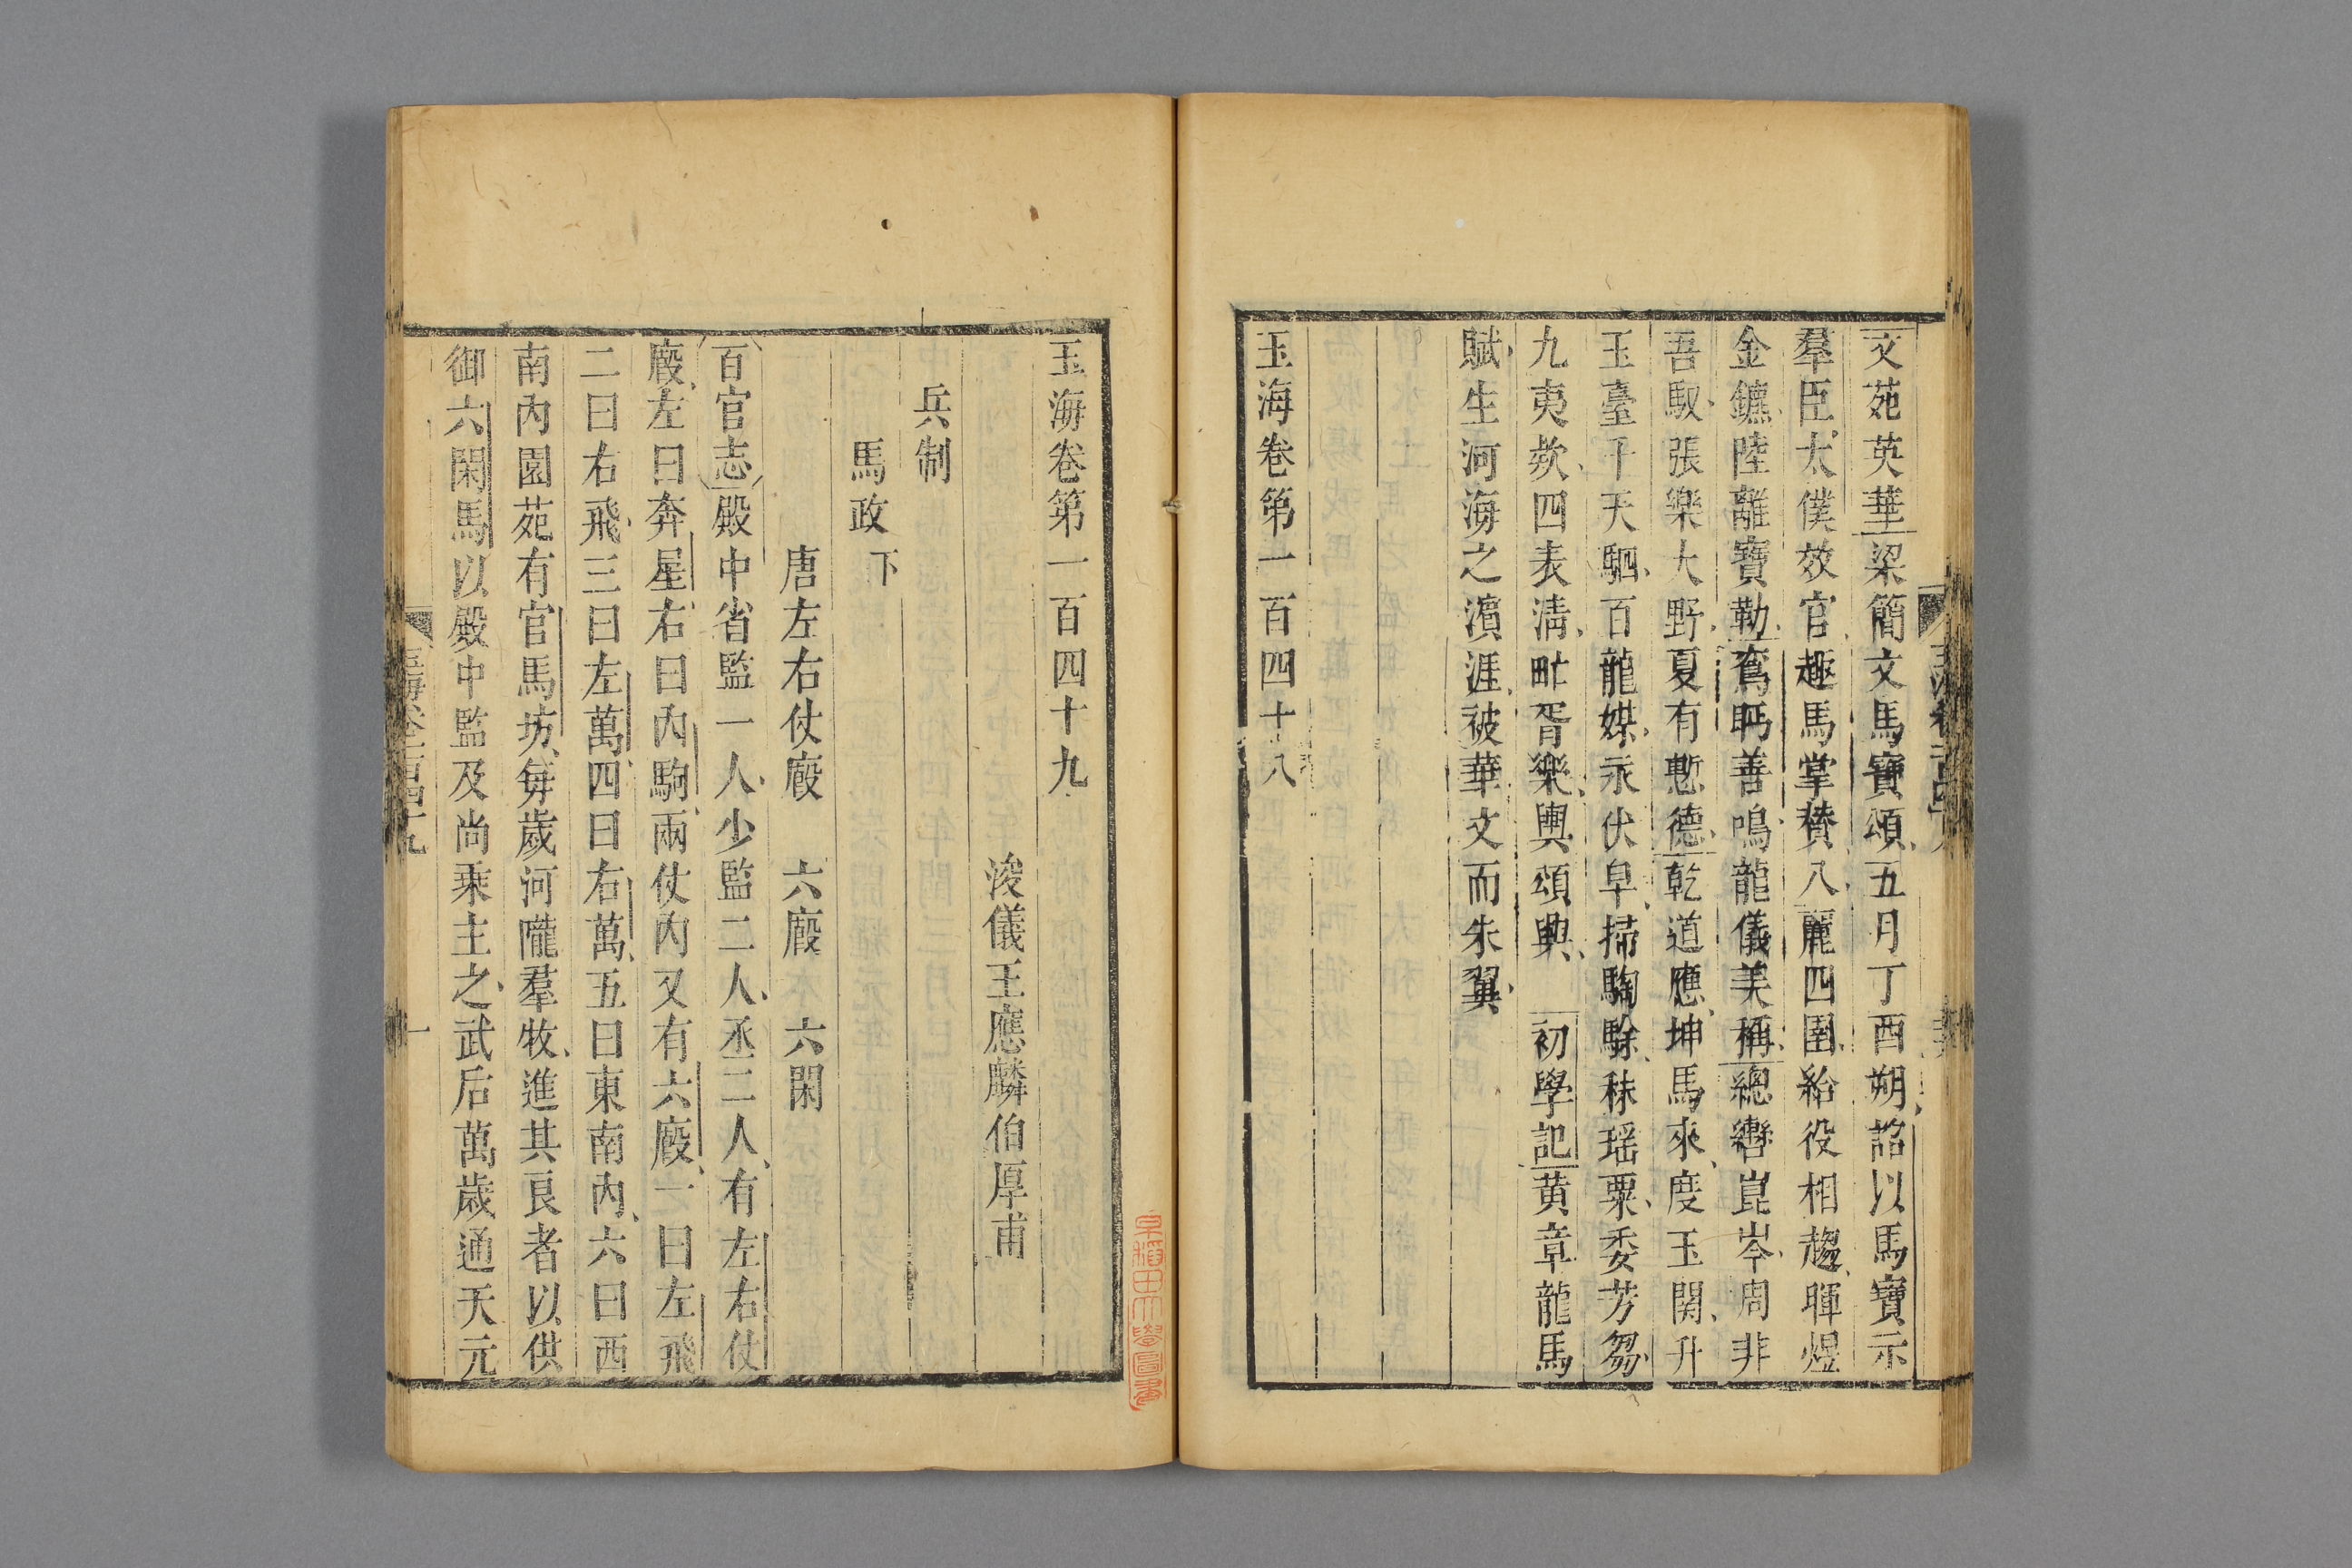 文苑英華梁簡文馬寶頌五月丁酉朔詔以馬寶示
羣臣太僕效官趣馬掌賛八麗四圉給役相趨暉煜
金鑣陸離寶勒鴐眄善鳴龍儀美稱總轡崑岑周非
吾馭張樂大野夏有慙德乾道應坤馬來度玉關升
玉臺千天駟百龍媒永伏皁掃騊駼秣瑶粟委芳芻
九夷欻四表淸甿胥樂輿頌興　初學記黄章龍馬
賦生河海之濵涯被華文而朱翼
玉海卷第一百四十八
玉海卷第一百四十九
浚儀王應麟伯厚甫
兵制
馬政下
唐左右仗廏　六廏　六閑
百官志殿中省監一人少監二人丞二人有左右仗
廏左曰奔星右曰內駒兩仗內又有六廏一曰左飛
二曰右飛三曰左萬四曰右萬五曰東南內六曰西
南內園苑有官馬坊每歲河隴羣牧進其良者以供
御六閑馬以殿中監及尚乗主之武后萬歲通天元
玉海卷一百四十九
一
早稲田大學圖書